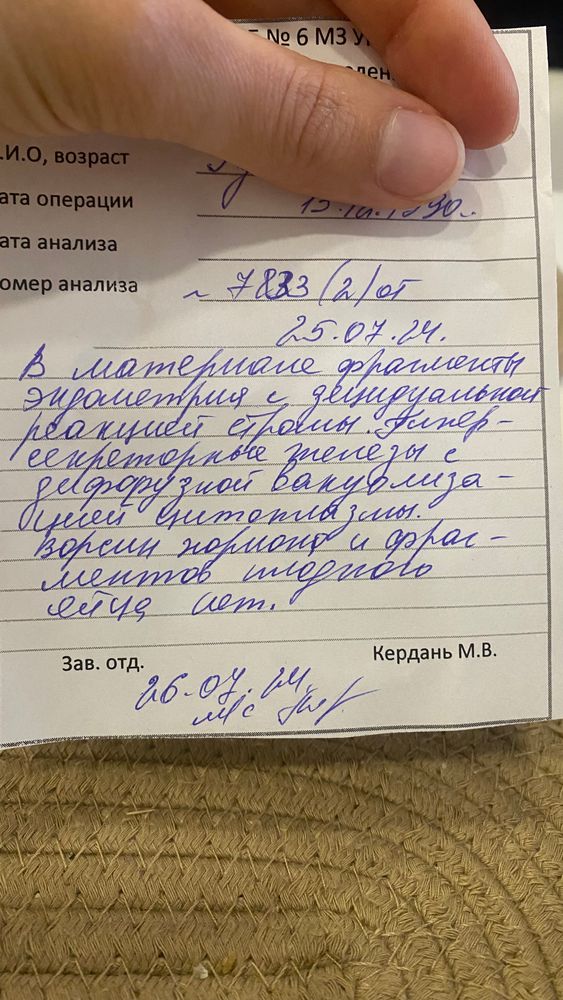 № 6 МЗ У
.И.О, возраст
ата операции 1990..
ата анализа
омер анализа ~ 7833 (2) от
25.07.24.
В материале фрагменты
эндометрия с децидуальной
реакцией стромы. Гипер-
секреторные железы с
диффузной вакуолиза-
цией цитоплазмы.
Ворсин хориона и фраг-
ментов плодного
яйца нет.
Зав. отд. Кердань М.В.
26.07.24.
м/с